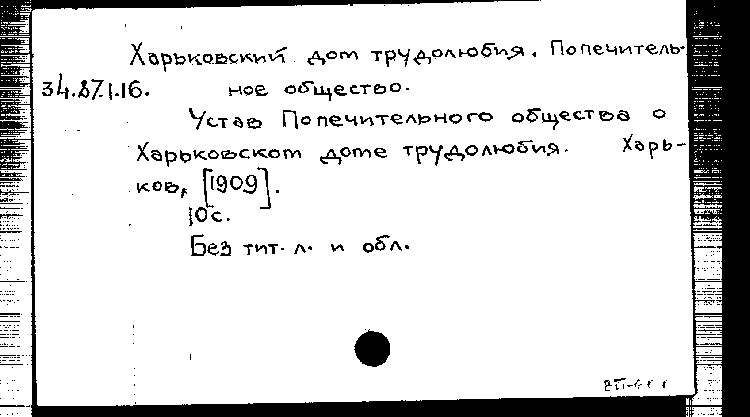 Харьковский дом трудолюбия. Попечитель-
34.87.1.16. ное общество.
Устав Попечительного общества о
Харьковском доме трудолюбия. Харь-
ков, [1909].
10с.
Без тит. л. и обл.